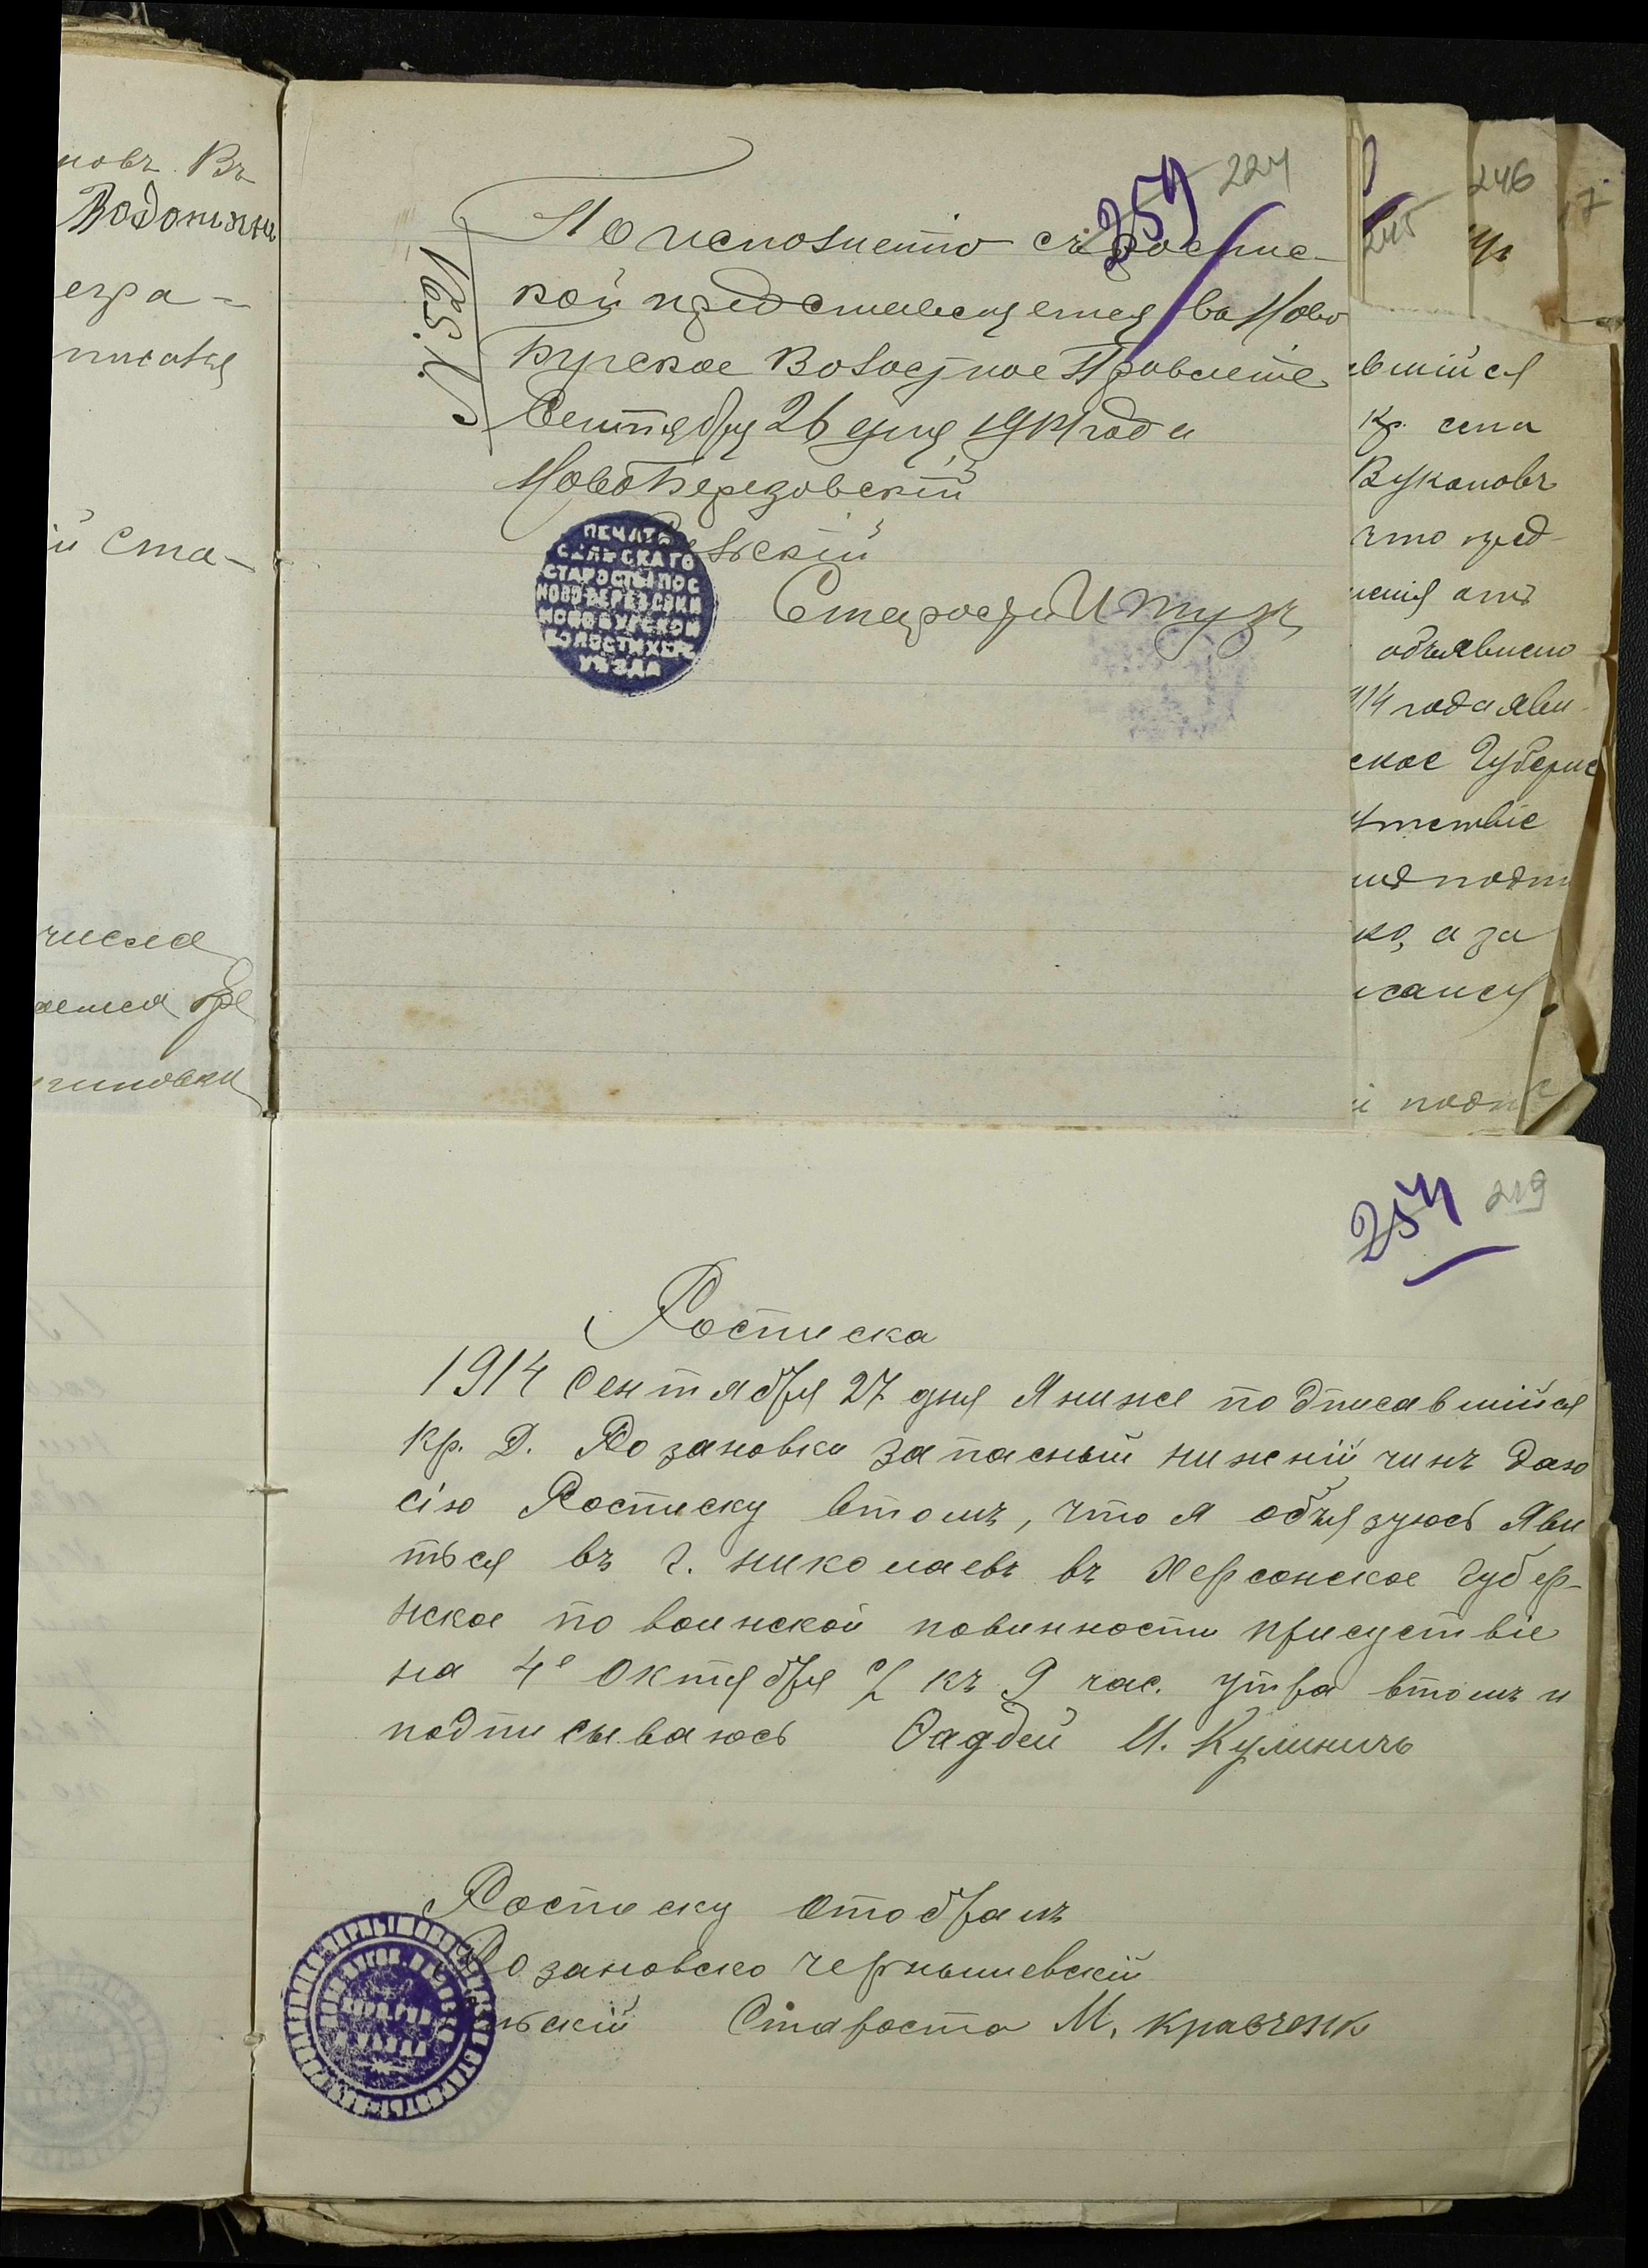 новъ Въ
Водопъяни
егра-
писотся
й Ста-
числа
гиновки
259 224
№ 521
По исполнетію съ роспис-
кой представляется во Ново
Бугское Волосное Правлетіе
Сентября 26 дня 1914 года
НовоБерезовскій
льскій
Староста
ПЕЧАТЬ
СЕЛЬСКАГО
СТАРОСТЫ ПОС
НОВОБЕРЕЗОВКИ
НОВОБУГСКОЙ
ВОЛОСТИ ХЕР
УѢЗДА
245
246
7
авшійся
кр. села
Вукановъ
что пред-
от
объявлено
914 года яви-
ское Губерн
утствіе
ко, а за
исался
й подп
254 219
Росписка
1914 Сентября 27 дня Я ниже подписавшійся
кр. Д. Розановки запасный нижній чинъ даю
сію Росписку втомъ, что я объязуюсь Яви
ться въ г. николаевъ въ Херсонское Губер-
нское по воинской повинности присуствіе
на 4е Октября с/г къ 9 час. утра втомъ и
подписываюсь Фадей И. Кулиничъ
Росписку отобралъ
Розановско чернышевскій
льскій Староста М. кравченк